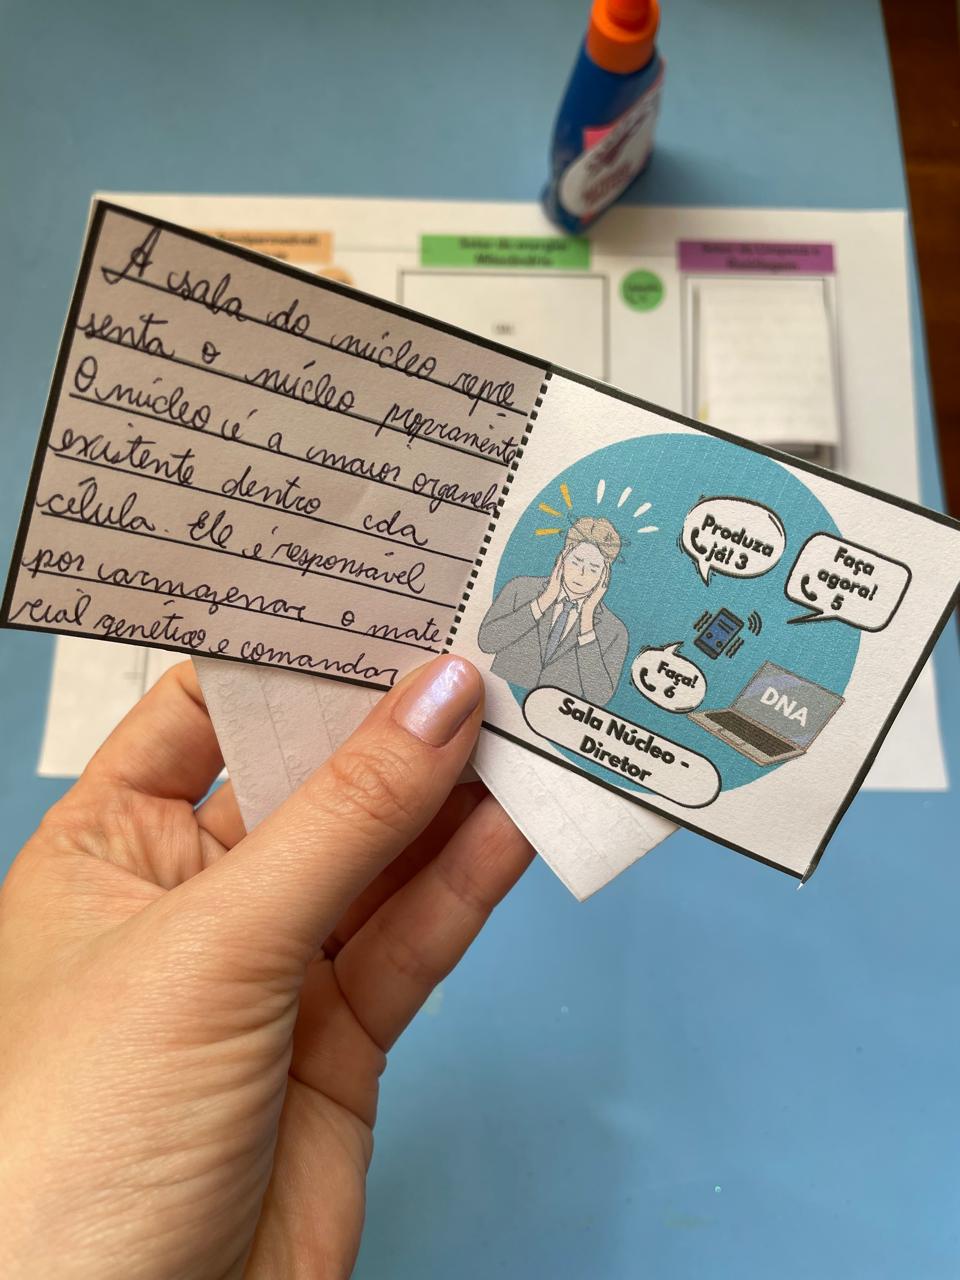 A sala do núcleo repre
senta o núcleo propriamente
O núcleo é a maior organela
existente dentro da
célula. Ele é responsável
por armazenar o mate
rial genético e comandar
Produza
já! 3
Faça
agora!
5
Faça!
6
DNA
Sala Núcleo -
Diretor
Setor de energia
Mitocôndria
Setor de Limpeza e
Reciclagem